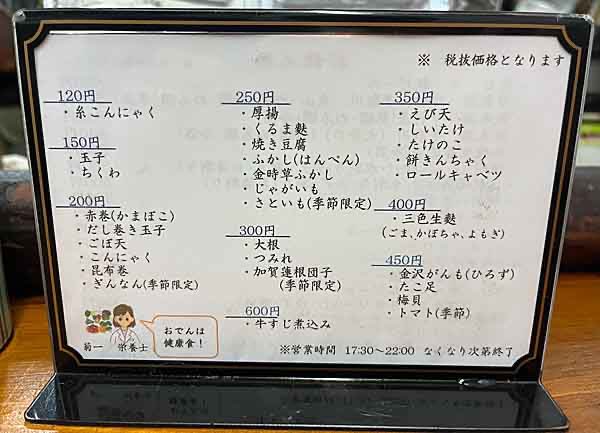 ※ 税抜価格となります
120円
・糸こんにゃく
150円
・玉子
・ちくわ
200円
・赤巻(かまぼこ)
・だし巻き玉子
・ごぼ天
・こんにゃく
・昆布巻
・ぎんなん(季節限定)
250円
・厚揚
・くるま麩
・焼き豆腐
・ふかし(はんぺん)
・金時草ふかし
・じゃがいも
・さといも(季節限定)
300円
・大根
・つみれ
・加賀蓮根団子
(季節限定)
600円
・牛すじ煮込み
350円
・えび天
・しいたけ
・たけのこ
・餅きんちゃく
・ロールキャベツ
400円
・三色生麩
(ごま、かぼちゃ、よもぎ)
450円
・金沢がんも(ひろず)
・たこ足
・梅貝
・トマト(季節)
おでんは
健康食！
菊一 栄養士
※営業時間 17:30～22:00 なくなり次第終了